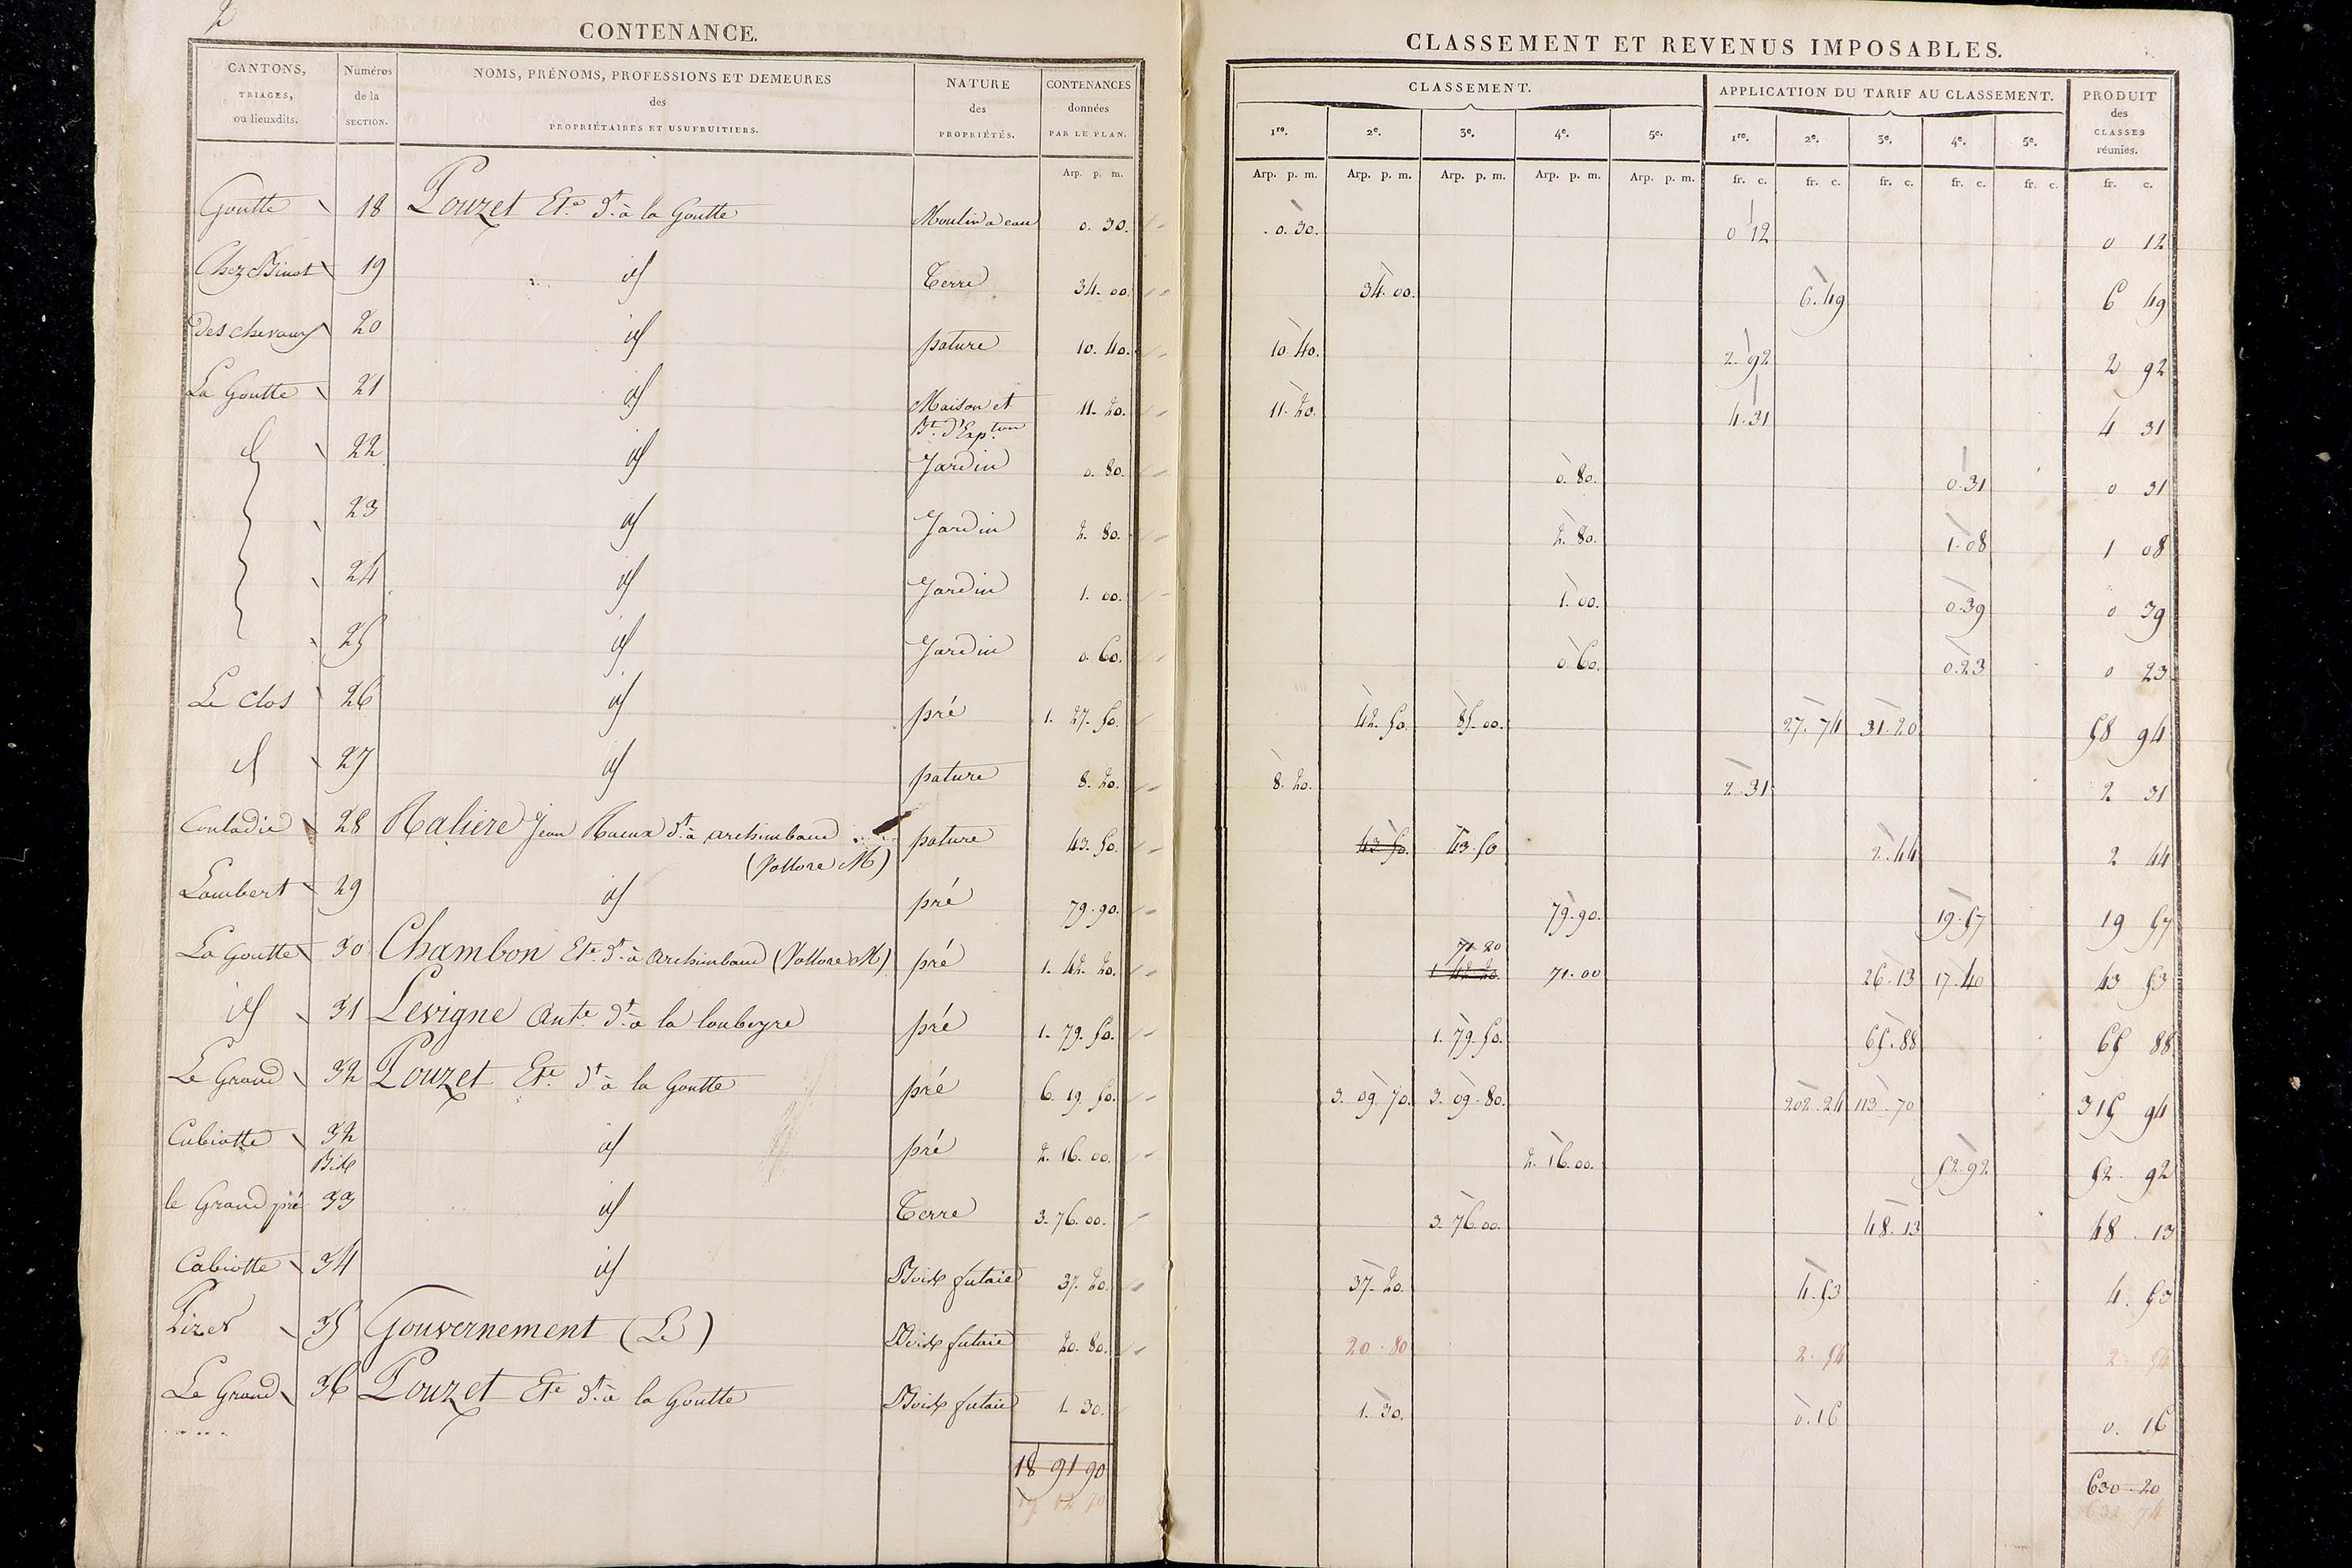 2
CONTENANCE.
CANTONS, TRIAGES, ou lieuxdits.
Numéros de la SECTION.
NOMS, PRÉNOMS, PROFESSIONS ET DEMEURES des PROPRIÉTAIRES ET USUFRUITIERS.
NATURE des PROPRIÉTÉS.
CONTENANCES données PAR LE PLAN.
CLASSEMENT ET REVENUS IMPOSABLES.
CLASSEMENT.
APPLICATION DU TARIF AU CLASSEMENT.
PRODUIT des CLASSES réunies.
1re. 2e. 3e. 4e. 5e. 1re. 2e. 3e. 4e. 5e.
Arp. p. m. Arp. p. m. Arp. p. m. Arp. p. m. Arp. p. m. Arp. p. m. fr. c. fr. c. fr. c. fr. c. fr. c. fr. c.
Goutte 18 Pouzet Ete. dt. à la Goutte Moulin a eau 0. 30. 0. 30. 0 12 0 12
Chez Binot 19 id Terre 34. 00. 34. 00. 6. 49 6 49
des chevaux 20 id pature 10. 40. 10. 40. 2. 92 2 92
La Goutte 21 id Maison et 11. 20. 11. 20. 4. 31 4 31
Bt. d'Exp.ton
d 22 id Jardin 0. 80. 0. 80. 0. 31 0 31
23 id Jardin 2. 80. 2. 80. 1. 08 1 08
24 id Jardin 1. 00. 1. 00. 0. 39 0 39
25 id Jardin 0. 60. 0. 60. 0. 23 0 23
Le clos 26 id pré 1. 27. 50. 42. 50. 85. 00. 27. 74 31. 20 58 94
d 27 id pature 8. 20. 8. 20. 2. 31 2 31
Couladie 28 Jean dt. à archimbaud pature 43. 50. 43 50. 43. 50 2. 44 2 44
(Vollore M)
Lambert 29 id pré 79. 90. 79. 90. 19. 57 19 57
71 20
La Goutte 30 Chambon Ete. dt. à archimbaud (Vollore M) pré 1. 42. 20. 1 42 20. 71. 00 26. 13 17. 40 43 53
id 31 Levigne Ante. dt. à la loubeyre pré 1. 79. 50. 1. 79. 50. 65. 88 65 88
Le Grand 32 Pouzet Ete. dt à la Goutte pré 6. 19. 50. 3. 09. 70. 3. 09. 80. 202. 24 113. 70 315 94
Cabiotte 32 id pré 2. 16. 00. 2. 16. 00. 52. 92 52. 92
Bis
le Grand pré 33 id Terre 3. 76. 00. 3. 76. 00. 48. 13 48. 13
Cabiotte 34 id Bois futaie 37. 20. 37. 20. 4. 53 4. 53
Pizet 35 Gouvernement (Le) Bois futaie 20. 80. 20. 80 2. 54 2. 54
Le Grand 36 Pouzet Ete dt. à la Goutte Bois futaie 1. 30. 1. 30. 0. 16 0. 16
18 91 90 630. 20
632 74